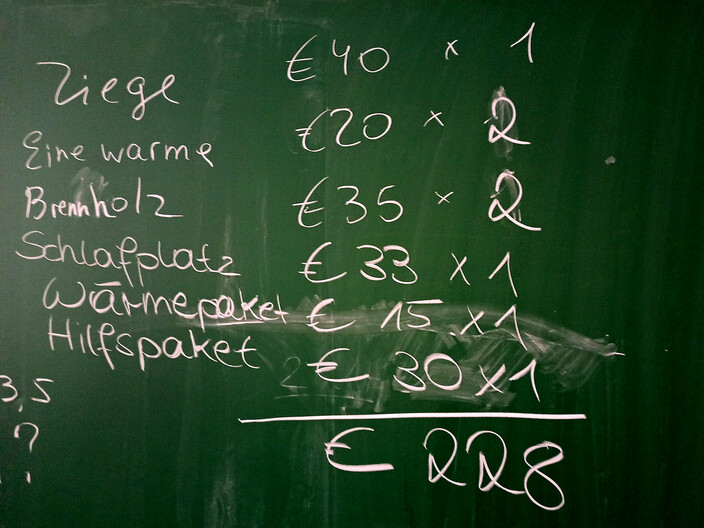 Ziege €40 x 1
Eine warme €20 x 2
Brennholz €35 x 2
Schlafplatz €33 x 1
Wärmepaket € 15 x 1
Hilfspaket € 30 x 1
3,5
?
€ 228